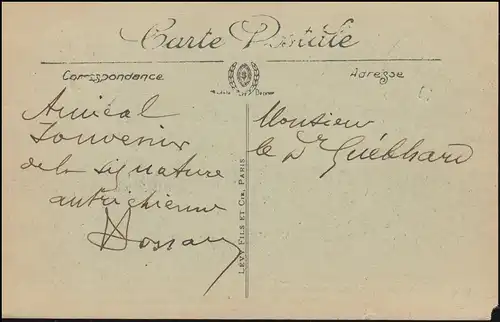 Carte Postale
Correspondance
Adresse
Amical
Souvenir
de la signature
autrichienne
Monsieur
le Dr Guébhard
LÉVY FILS ET CIE, PARIS